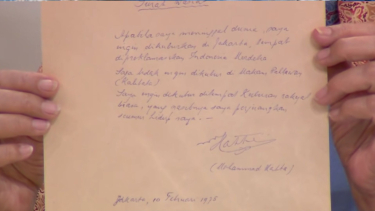 Surat Wasiat
Apabila saya meninggal dunia, saya
ingin dikuburkan di Jakarta, tempat
diproklamasikan Indonesia Merdeka.
Saya tidak ingin dikubur di Makam Pahlawan
(Kalibata).
Saya ingin dikubur di tempat Kuburan rakyat
biasa, yang nasibnya saya perjuangkan
seumur hidup saya.—
Hatta
(Mohammad Hatta)
Jakarta, 10 Februari 1975